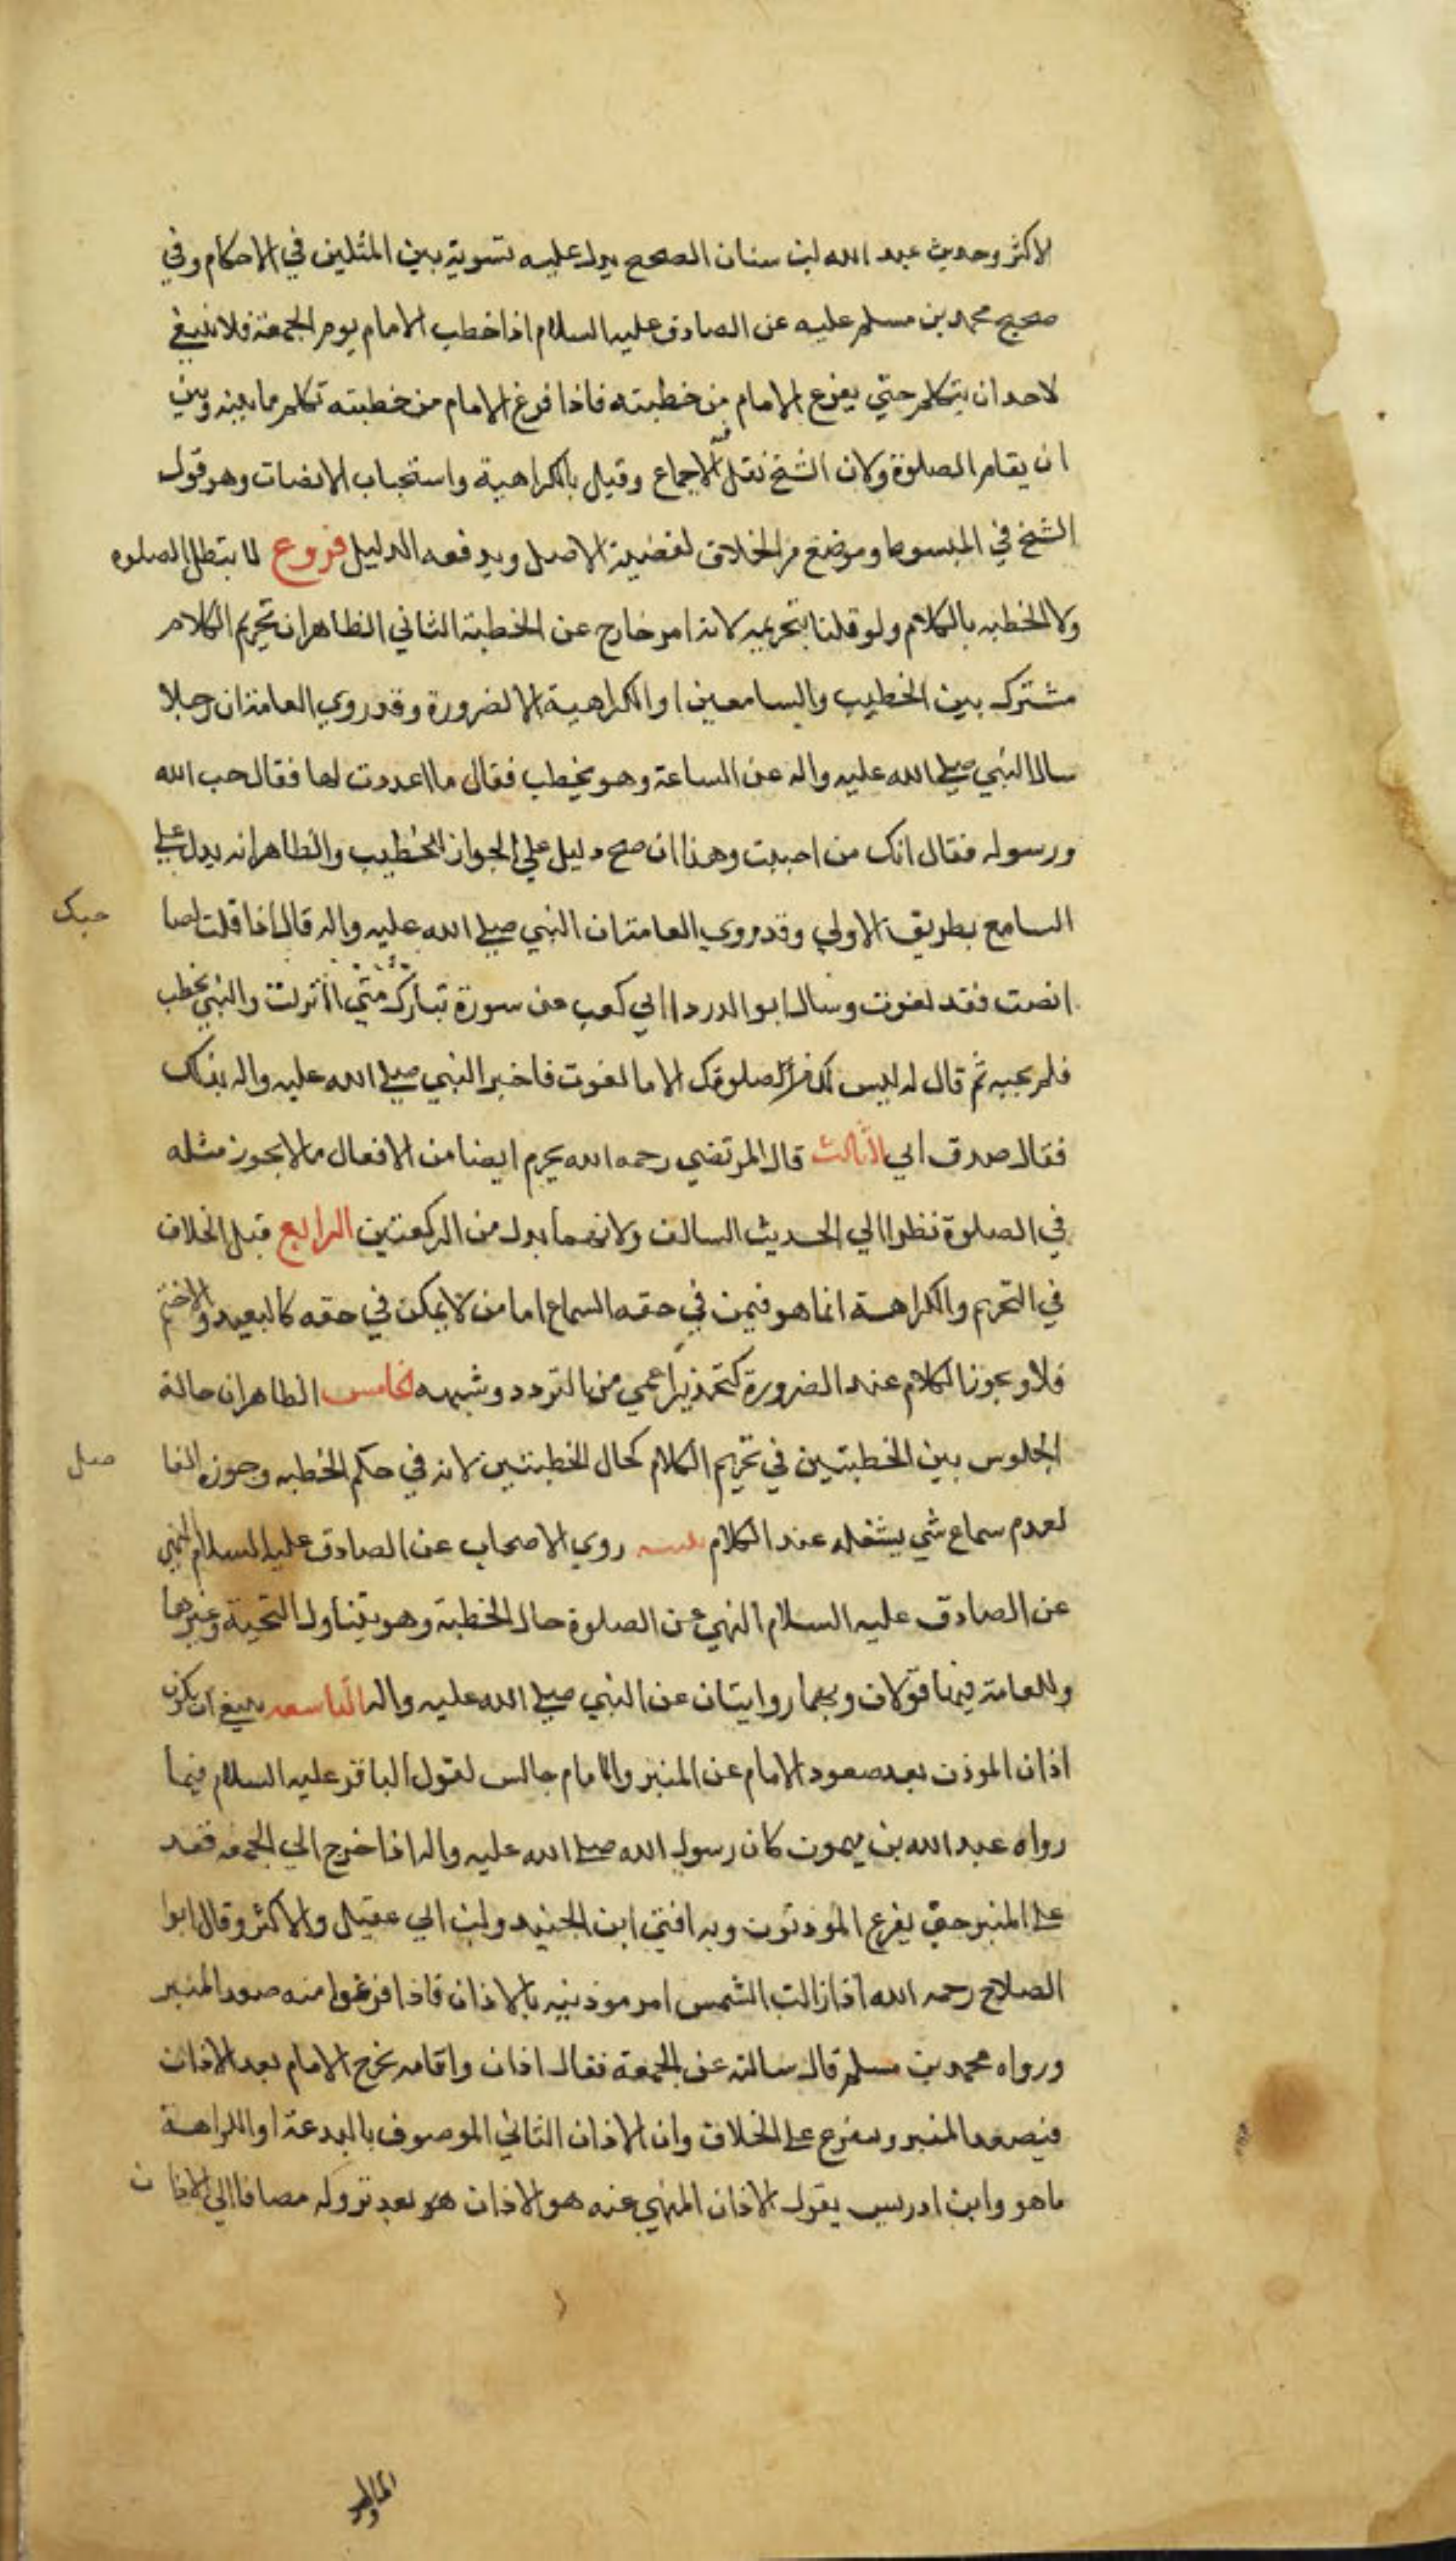 الاكثر وحديث عبد الله بن سنان الصحيح يدل عليه تسوية بين المثلين في الاحكام وفي
صحيح محمد بن مسلم عليه عن الصادق عليه السلام اذا خطب الامام يوم الجمعة فلا ينبغي
لاحد ان يتكلم حتي يفرغ الامام من خطبته فاذا فرغ الامام من خطبته تكلم ما بينه وبين
ان يقام الصلوة ولان الشيخ نقل فيه الاجماع وقيل بالكراهية واستحباب الانصات وهو قول
الشيخ في المبسوط وموضع من الخلاف لقضية الاصل ويدفعه الدليل فروع لا يبطل الصلوه
ولا الخطبه بالكلام ولو قلنا بتحريمه لانه امر خارج عن الخطبة الثاني الظاهر ان تحريم الكلام
مشترك بين الخطيب والسامعين او الكراهية الا لضرورة وقد روي العامة ان رجلا
سال النبي صلي الله عليه واله عن الساعة وهو يخطب فقال ما اعددت لها فقال حب الله
ورسوله فقال انك من احببت وهذا ان صح دليل علي الجواز للخطيب والظاهر انه يدل علي
السامع بطريق الاولي وقد روي العامة ان النبي صلي الله عليه واله قال اذا قلت لصا
حبك
انصت فقد لغوت وسال ابو الدردا ابي كعب عن سورة تبارك متي انزلت والنبي يخطب
فلم يجبه ثم قال له ليس لك من صلوتك الا ما لغوت فاخبر النبي صلي الله عليه واله بذلك
فقال صدق ابي الثالث قال المرتضي رحمه الله يحرم ايضا من الافعال ما لا يجوز مثله
في الصلوة نظرا الي الحديث السالف ولانهما بدل من الركعتين الرابع قيل الخلاف
في التحريم والكراهة انما هو فيمن في حقه السماع اما من لا يمكن في حقه كالبعيد والاصم
فلا ويجوز الكلام عند الضرورة كتحذير اعمي من التردد وشبهه الخامس الظاهر ان حالة
الجلوس بين الخطبتين في تحريم الكلام كحال الخطبتين لانه في حكم الخطبه وجوزه الفا
ضل
لعدم سماع شي يشغله عند الكلام روي الاصحاب عن الصادق عليه السلام النهي
عن الصادق عليه السلام النهي عن الصلوة حال الخطبة وهو يتناول التحية وغيرها
وللعامة فيها قولان وبهما روايتان عن النبي صلي الله عليه واله التاسعه ينبغي ان يكون
اذان الموذن بعد صعود الامام عن المنبر والامام جالس لقول الباقر عليه السلام فيما
رواه عبد الله بن ميمون كان رسول الله صلي الله عليه واله اذا خرج الي الجمعه قعد
علي المنبر حتي يفرغ الموذنون وبه افتي ابن الجنيد وابن ابي عقيل والاكثر وقال ابوا
الصلاح رحمه الله اذا زالت الشمس امر موذنيه بالاذان فاذا فرغوا منه صعد المنبر
ورواه محمد بن مسلم قال سالته عن الجمعة فقال اذان واقامه يخرج الامام بعد الاذان
فيصعد المنبر ويتفرع علي الخلاف وان الاذان الثاني الموصوف بالبدعة او الكراهة
ما هو وابن ادريس يقول الاذان المنهي عنه هو الاذان هو بعد نزوله مضافا الي الاذان